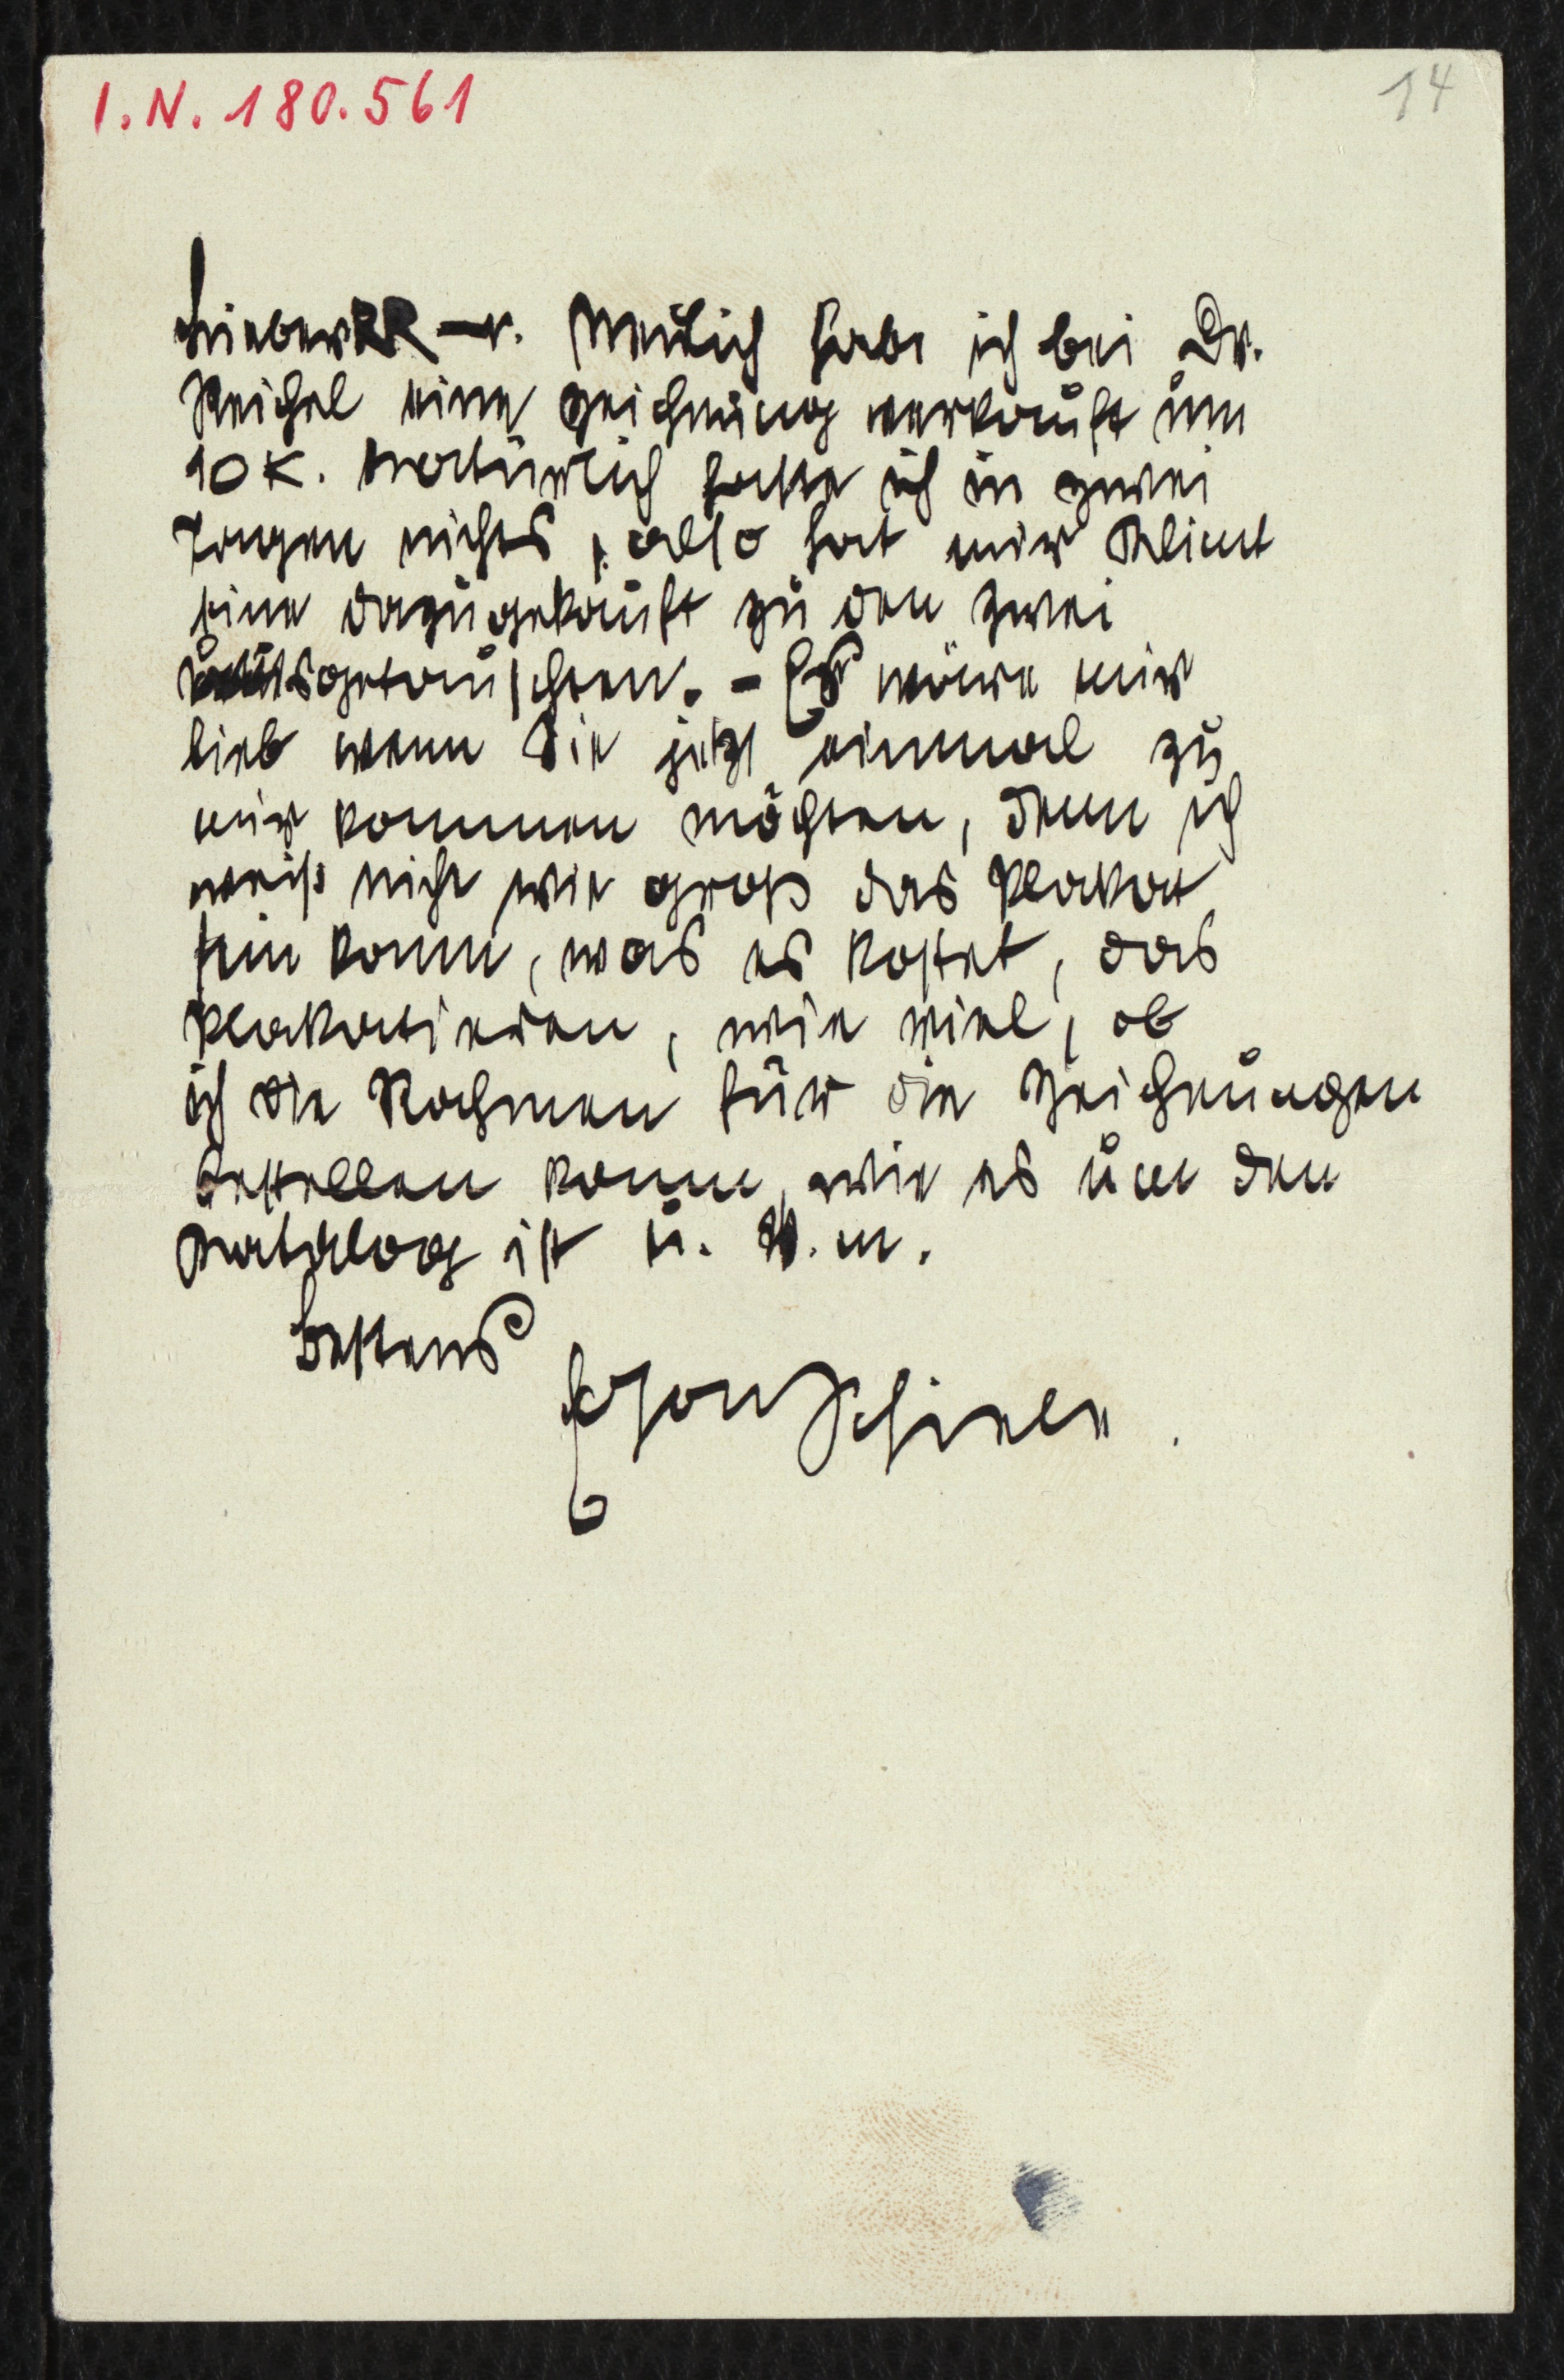 I.N. 180.561
14
Lieber RR–r. Neulich habe ich bei Dr.
Reichel eine Zeichnung verkauft um
10 K. Natürlich hatte ich in zwei
Tagen nichts, also hat mir Klimt
eine dazugekauft zu den zwei
ausgetauschten. – Es wäre mir
lieb wenn Sie jetzt einmal zu
mir kommen möchten, denn ich
weiß nicht wie groß das Plakat
sein kann, was es kostet, das
Plakatieren, wie viel, ob
ich die Rahmen für die Zeichnungen
bestellen kann, wie es um den
Katalog ist u. s. w.
bestens
Egon Schiele.